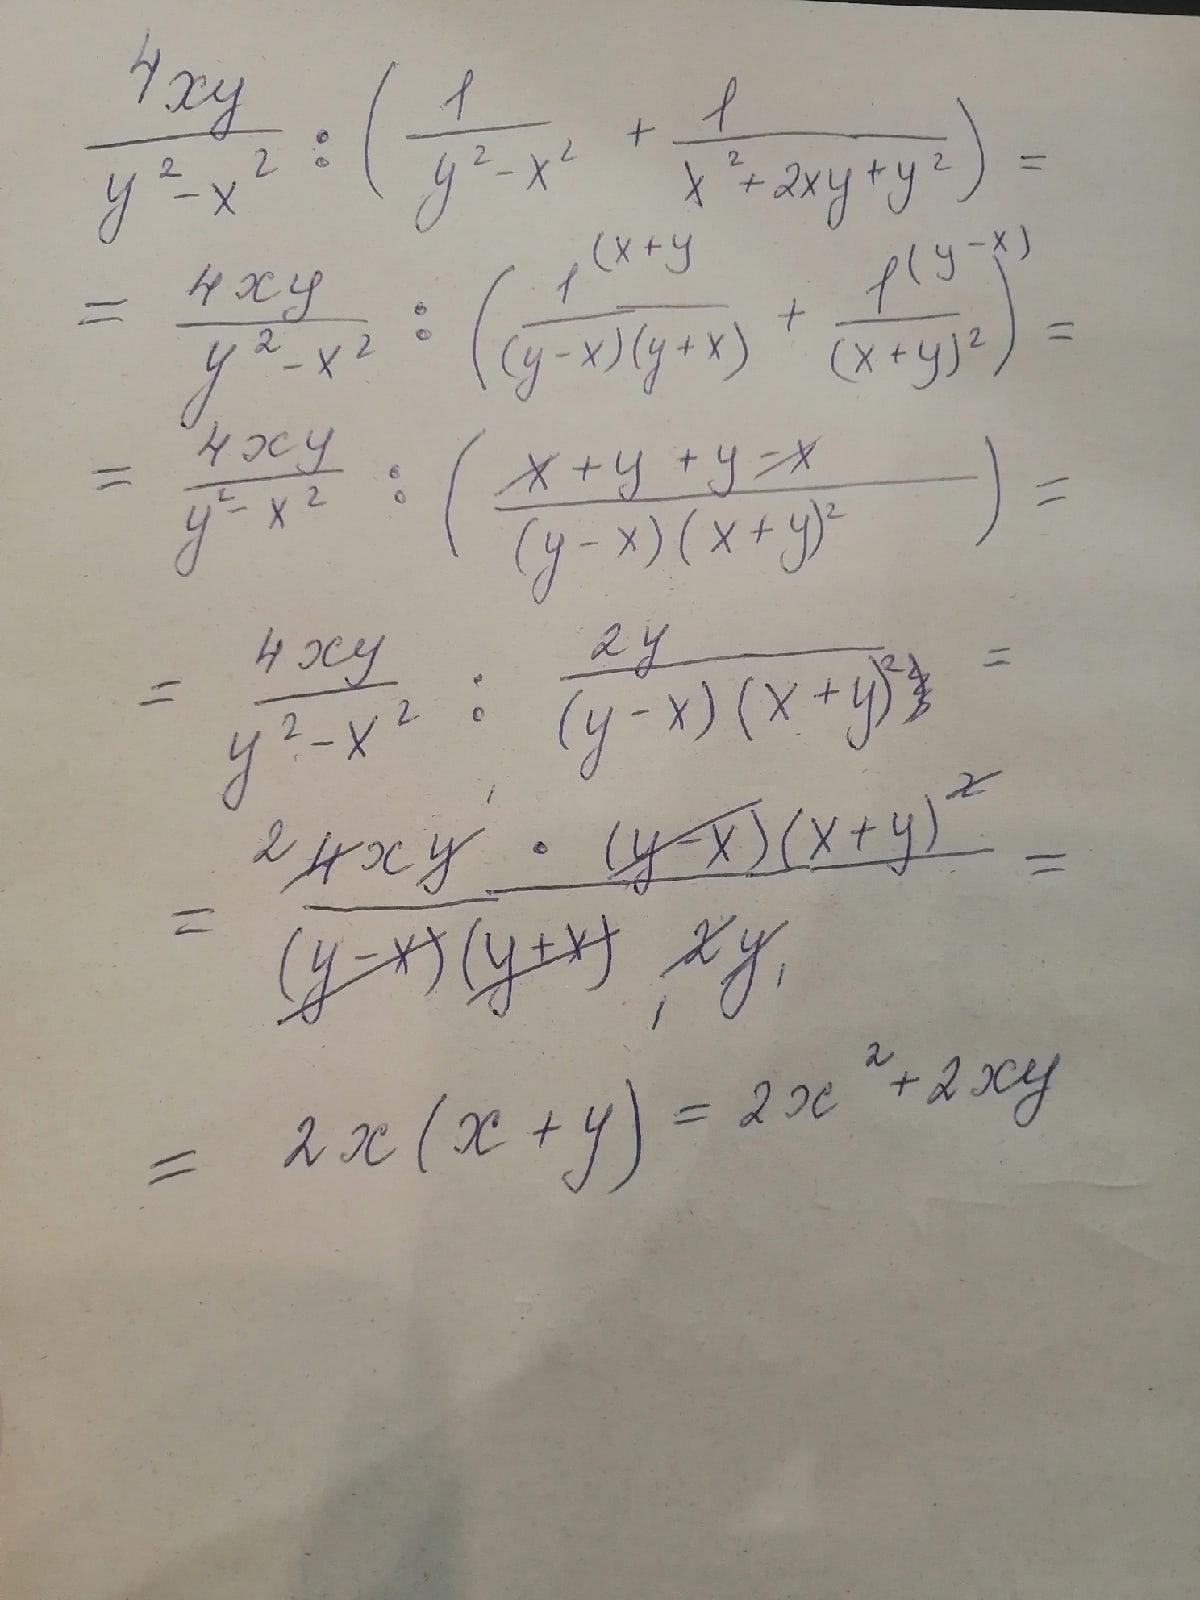 4xy/(y²-x²) : (1/(y²-x²) + 1/(x²+2xy+y²)) =
= 4xy/(y²-x²) : (1^(x+y/((y-x)(y+x)) + 1^(y-x)/((x+y)²)) =
= 4xy/(y²-x²) : ((x+y+y-x)/((y-x)(x+y)²)) =
= 4xy/(y²-x²) : 2y/((y-x)(x+y)²) =
= 2 4xy · (y-x)(x+y)²/((y-x)(y+x) 2y) =
= 2x(x+y) = 2x²+2xy